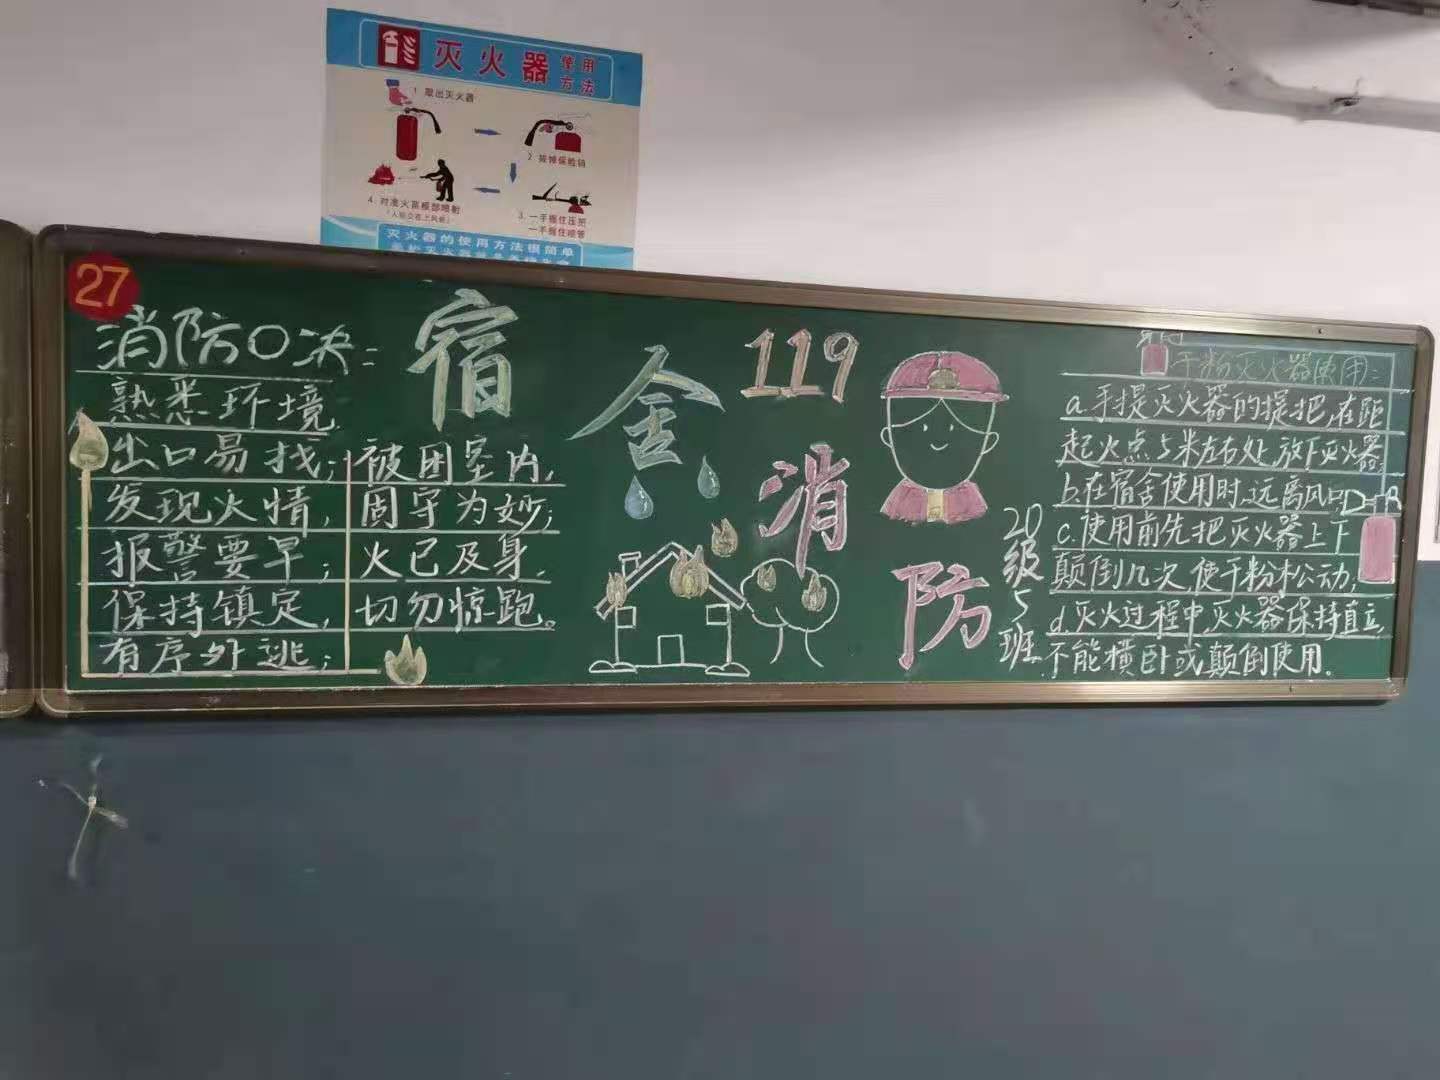 灭火器 使用
方法
1. 取出灭火器
2. 拔掉保险销
3. 一手握住压把
一手握住喷管
4. 对准火苗根部喷射
(人站立在上风侧)
灭火器的使用方法很简单
27
消防口决:
熟悉环境
出口易找;
发现火情,
报警要早;
保持镇定,
有序外逃;
被困室内,
固守为妙;
火已及身,
切勿惊跑。
宿舍
119
消防
20级5班
干粉灭火器使用:
a.手提灭火器的提把,在距
起火点5米左右处,放下灭火器
b.在宿舍使用时,远离风口
c.使用前先把灭火器上下
颠倒几次,使干粉松动;
d.灭火过程中,灭火器保持直立,
不能横卧或颠倒使用.